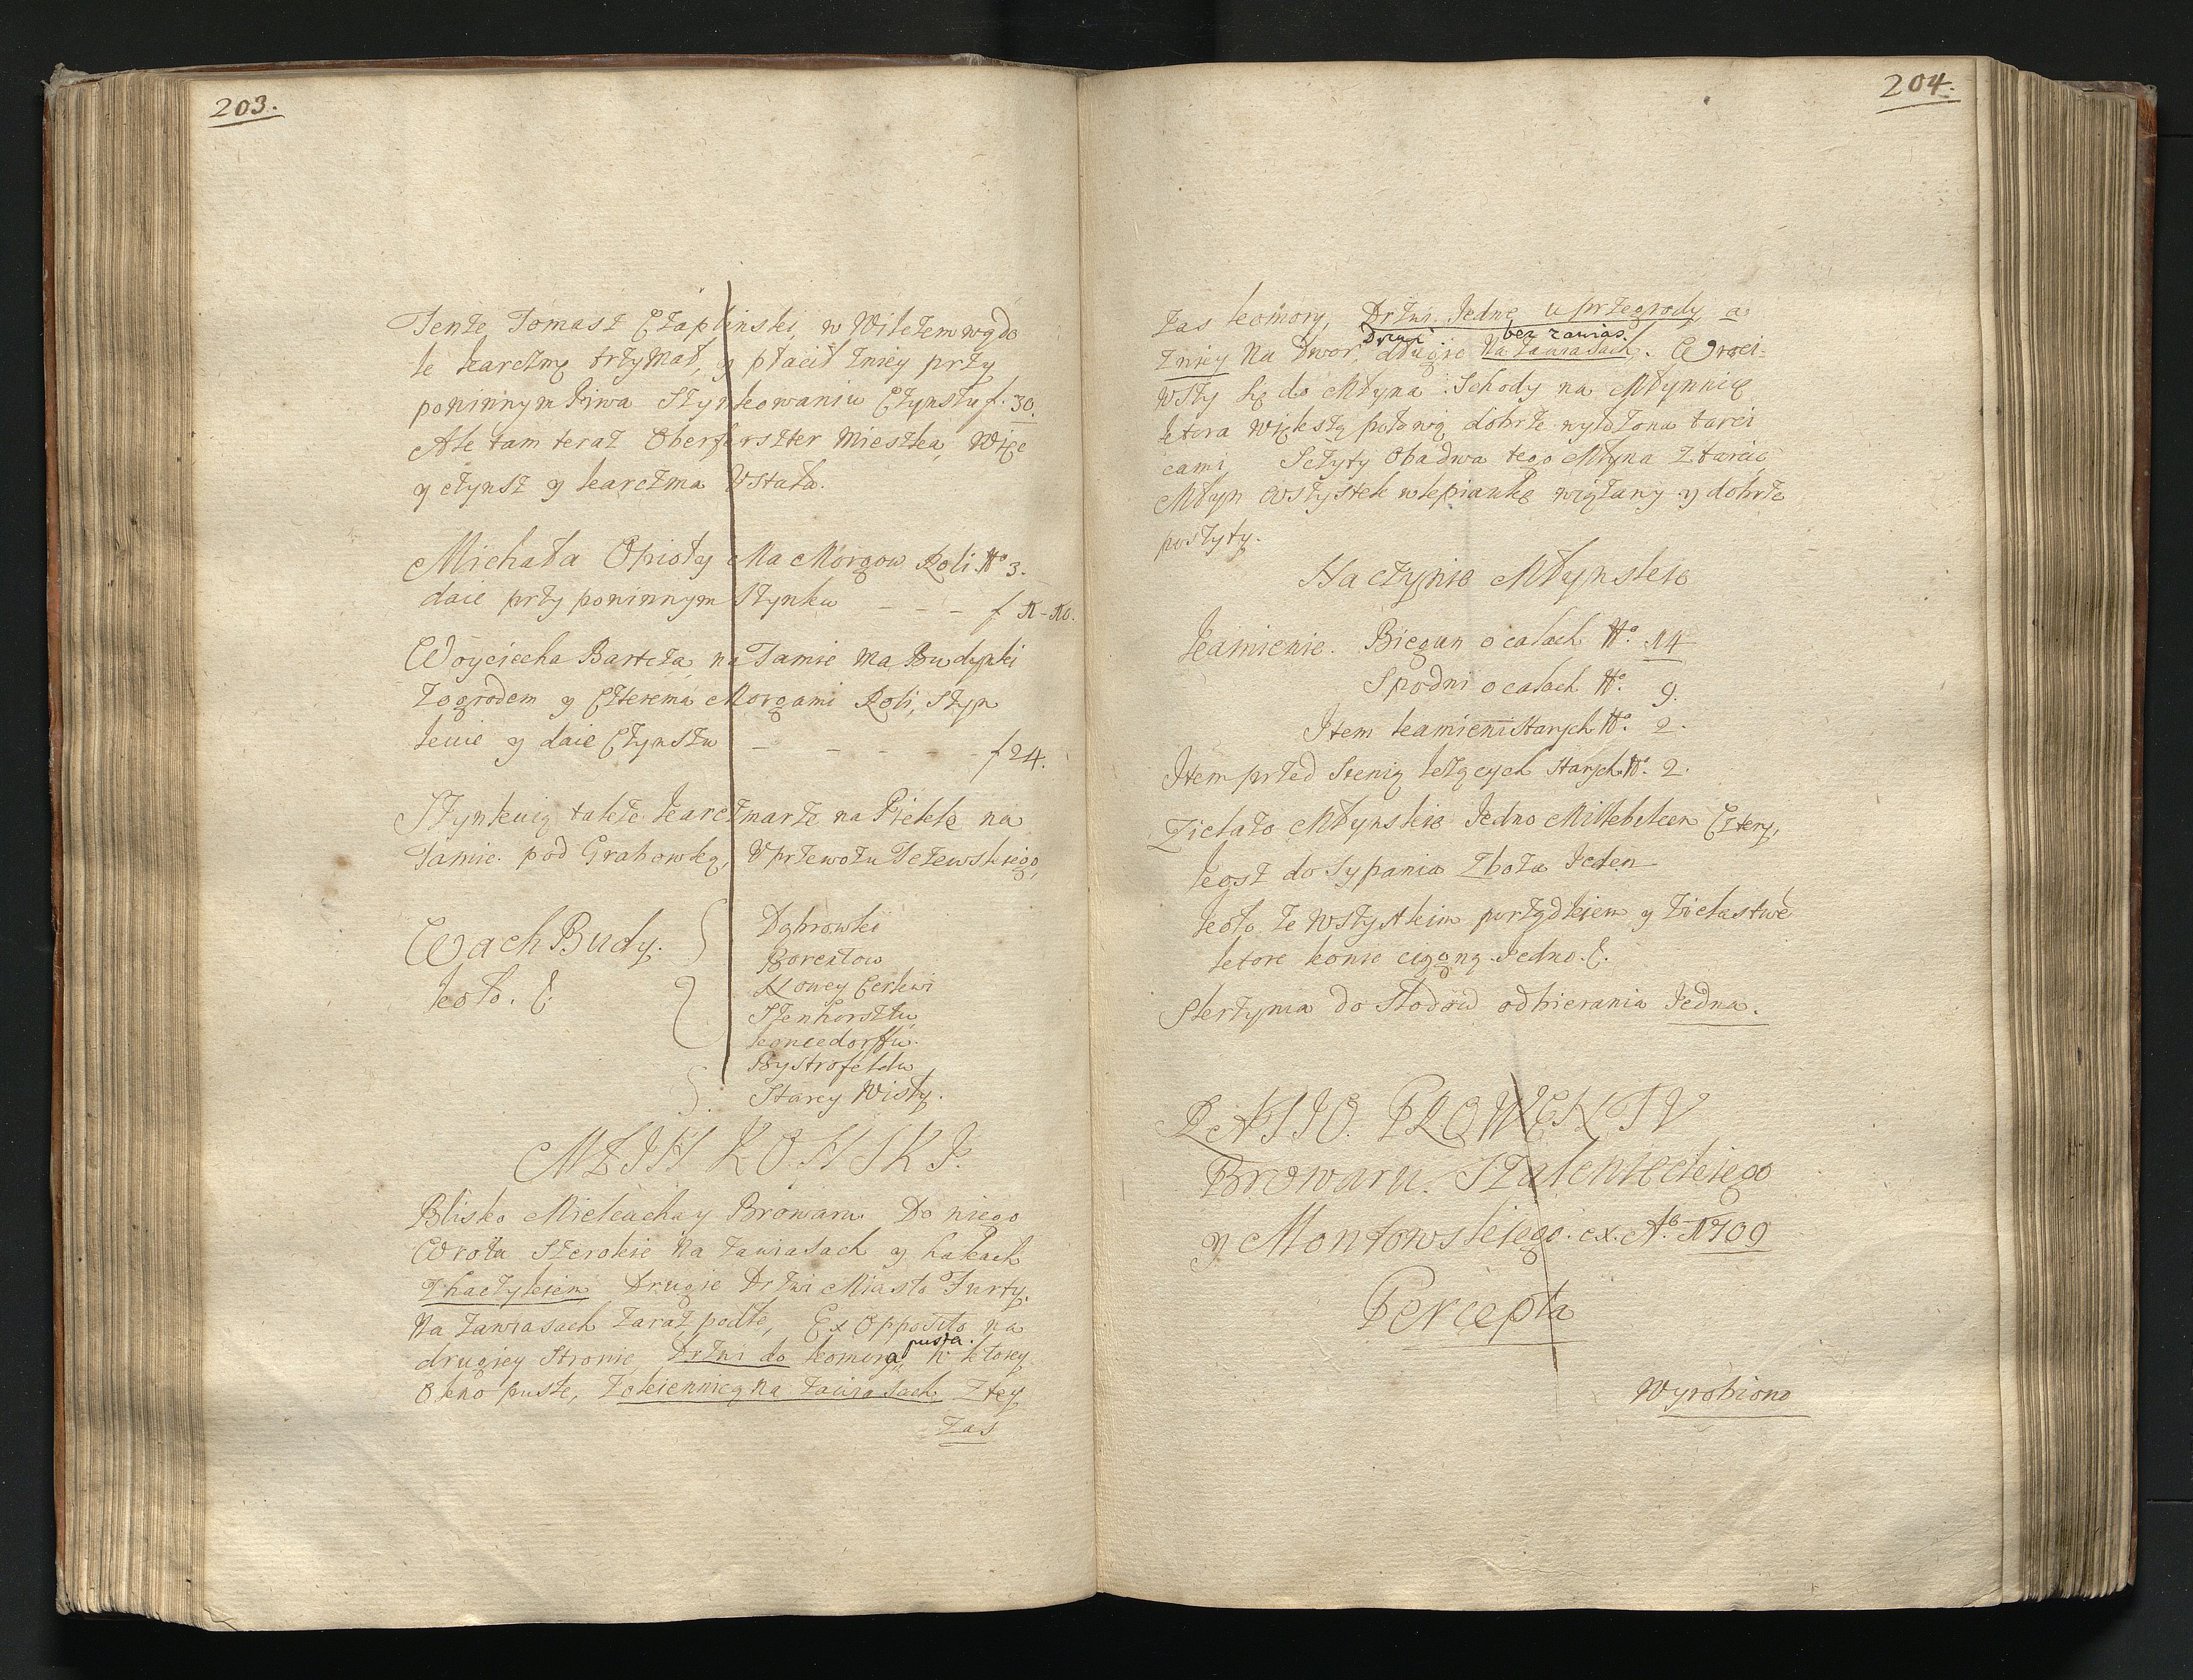 203.
Tenże Tomasz Czapliński, w Wilczem wgdo
le karczmę trzymał, y płacił zniey przy
powinnym Piwa Szynkowaniu Czynszu f. 30.
Ale tam teraz Oberforszter Mieszka, Więc
y czynsz y karczma Ustała.
Michała Opioły Ma Morgow Roli No 3.
daie przy powinnym Szynku - - - f 11-10.
Woyciecha Bartcza, na Tamie Ma Budynki
Zogrodem y Czterema Morgami Roli, Szyn
kuie y daie Czynszu - - - - - f 24.
Szynkuią także karczmarze na Piekle na
Tamie pod Grabowką, U przewozu Tczewskiego,
Wach Budy.
koło. &
Dąbrowki
Borentow
Nowey Cerkwi
Szenhorsztu
koncedorffu.
Bystrofeldu
Starey Wisły.
MŁYN KONSKI.
Blisko Mielcucha y Browaru Do niego
Wrota Szerokie Na zawiasach y hakach
Zhaczykiem Drugie Drzwi Miasto Furty.
Na zawiasach zaraz podle, Ex Opposito na
drugiey Stronie Drzwi do komory, pusta. w ktorey
Okno puste, Zokiennicą na zawiasach, Ztey
zas
204.
zas komory, Drzwi Jedne u przegrody a:
Drwi bez zawias.
Zniey Na Dwor, drugie Na zawiasach. Wroci-
wszy się do Młyna Schody na Młynnicę
ktora większą połowę dobrze wyłożona tarci
cami, Sczyty Obadwa tego Młyna Ztarcic
Młyn Wszystek wlepiankę wiązany y dobrze
poszyty.
Naczynie Młynskie
Kamienie. Biegun o calach No. 14
Spodni o calach No. 9.
Item kamieni Starych No. 2.
Item przed Sienią leżących Starych No. 2.
Zielazo Młynskie Jedno Millebiken Cztery,
kosz do Sypania Zboża Jeden
koło ze wszystkim porządkiem y żielastwe
ktore konie ciągną Jedno. &.
Skrzynia do Słodow odbierania Jedna.
RATIO PROWENTU
Browaru Szalenieckiego
y Montowskiego. ex Ao. 1709
Percepta
Wyrobiono